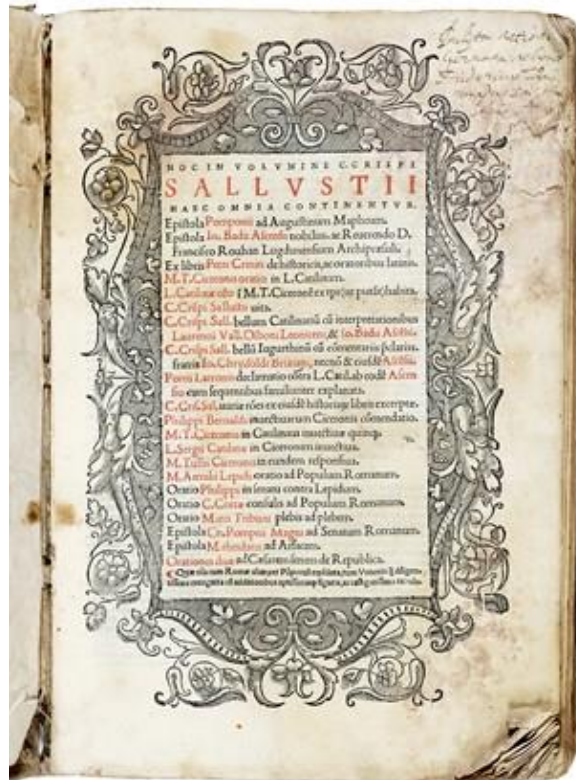 HOC IN VOLVMINE C. CRISPI
SALLVSTII
HAEC OMNIA CONTINENTVR.
Epistola Pomponii ad Augustinum Maphoeum.
Epistola Io. Badii Ascensii nobiliss. ac Reuerendo D.
Francisco Rouhan Lugdunensium Archipresuli.
Ex libris Petri Criniti de historicis, ac oratoribus latinis.
M. T. Ciceronis oratio in L. Catilinam.
L. Catilinae
C. Crispi Sallustii uita.
C. Crispi Sall. bellum Catilinariū cū interpretationibus
Laurentii Vall. Omniboni Leoniceni, & Io. Badii Ascēsii.
C. Crispi Sall. bellū Iugurthinū cū commentariis
fratris Io. Chrysostomi Brixiani, necnō & eiusdē Ascēsii.
Portii Latronis declamatio cōtra L. Catil. ab eodē Ascen
sio cum sequentibus familiariter explanata.
C. Cris. Sal. uariae ex eiusdē libris excerptae.
Philippi Beroaldi inuectiuarum Ciceronis cōmendatio.
M. T. Ciceronis in Catilinam inuectiuae quinque.
L. Sergii Catilinae in Ciceronem inuectiua.
M. Tullii Ciceronis in eundem responsiua.
M. Aemilii Lepidi oratio ad Populum Romanum.
Oratio Philippi in senatu contra Lepidum.
Oratio C. Cottae consulis ad Populum Romanum.
Oratio Marci Tribuni plebis ad plebem.
Epistola Cn. Pompeii Magni ad Senatum Romanum.
Epistola Mithridatis ad Arsacem.
Orationes duae ad Caesarem senem de Republica.